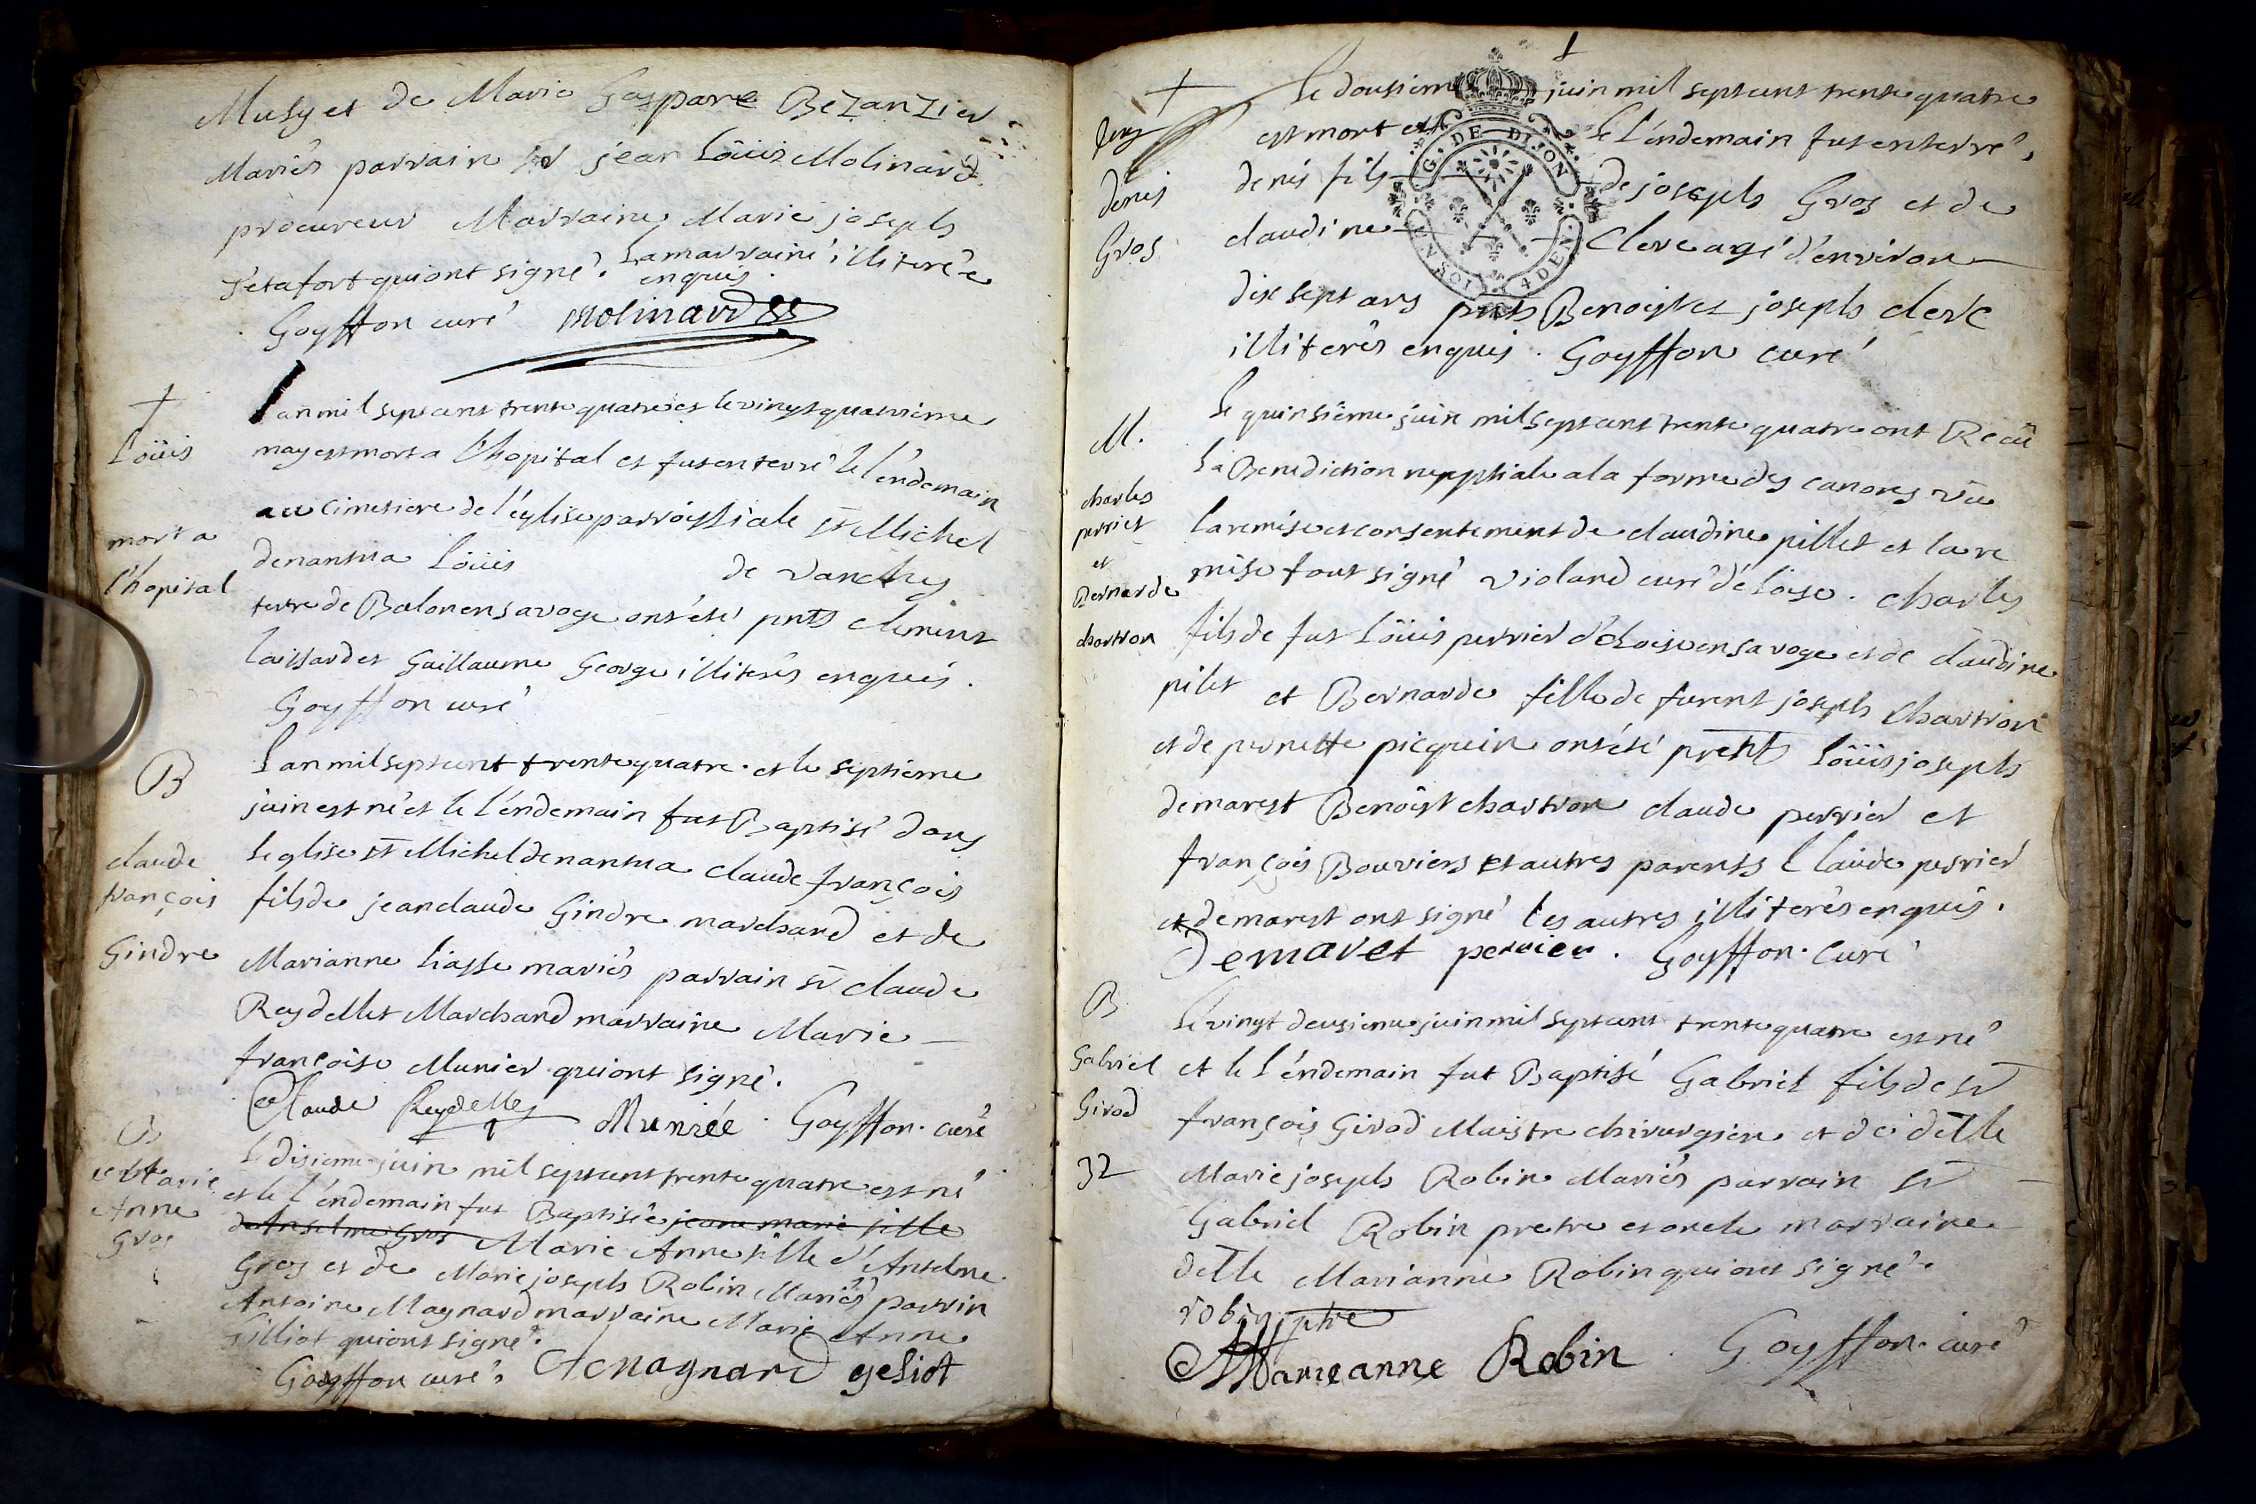 Musy et de Marie Gaspare Bezanzier
Mariés parrain sr jean Loüis Molinard
procureur Marraine Marie joseph
Tetafort qui ont signé. La marraine illiterée
enquis.
Goyffon curé Molinard
†
Loüis
mort a
l'hopital
Lan mil sept cent trente quatre et le vingt quatrieme
may est mort a l'hopital et fut enterré le l'endemain
au cimetiere de l'église parroissiale St Michel
de nantua Loüis de vanchy
terre de Balon en savoye ont été pnts clement
Laissard et Guillaume George illiterés enquis.
Goyffon curé
B
claude
françois
Gindre
Lan mil sept cent trente quatre et le septieme
juin est né et le l'endemain fut Baptisé dans
leglise St Michel de nantua claude françois
fils de jean claude Gindre marchand et de
Marianne Liasse mariés parrain sr claude
Reydellet Marchand marraine Marie
françoise Munier qui ont signé.
Claude Reydellet Muniée Goyffon curé
B
Marie
Anne
Gros
Le disieme juin mil sept cent trente quatre est né
et le l'endemain fut Baptisée jeane marie fille
d'Anselme Gros Marie Anne fille d'Antelme
Gros et de Marie joseph Robin Mariés parrin
Antoine Magnard marraine Marie Anne
Gilliot qui ont signé.
Goyffon curé. Magnard geliot
1
†
denis
Gros
Le dousieme juin mil sept cent trente quatre
est mort et le l'endemain fut enterré
G. DE DIJON
denis fils de joseph Gros et de
claudine Clerc agé d'environ
4 DEN
dix sept ans pnts Benoist et joseph clerc
illiterés enquis. Goyffon curé
M.
charles
perrier
et
Bernarde
chartron
Le quinsieme juin mil sept cent trente quatre ont Reçû
la Benediction nuptiale a la forme des canons vûe
la remise et consentement de claudine pillet et la re
mise fout signé violand curé de Loise. charles
fils de fut Loüis perrier de Loise en savoye et de claudine
pilet et Bernarde fille de furent joseph chartron
et de pernette picquein ont été presents Loüis joseph
demarest Benoist chartron claude perrier et
françois Bouviers et autres parents Claude perrier
et demarest ont signé les autres illiterés enquis.
Demaret perrier. Goyffon curé
B
Gabriel
Girod
32
Le vingt deusieme juin mil sept cent trente quatre est né
et le l'éndemain fut Baptisé Gabriel fils de sr
françois Girod Maistre chirurgien et de delle
Marie joseph Robin Mariés parrain sr
Gabriel Robin pretre et oncle marraine
delle Marianne Robin qui ont signé.
robin ptre
Marieanne Robin. Goyffon curé